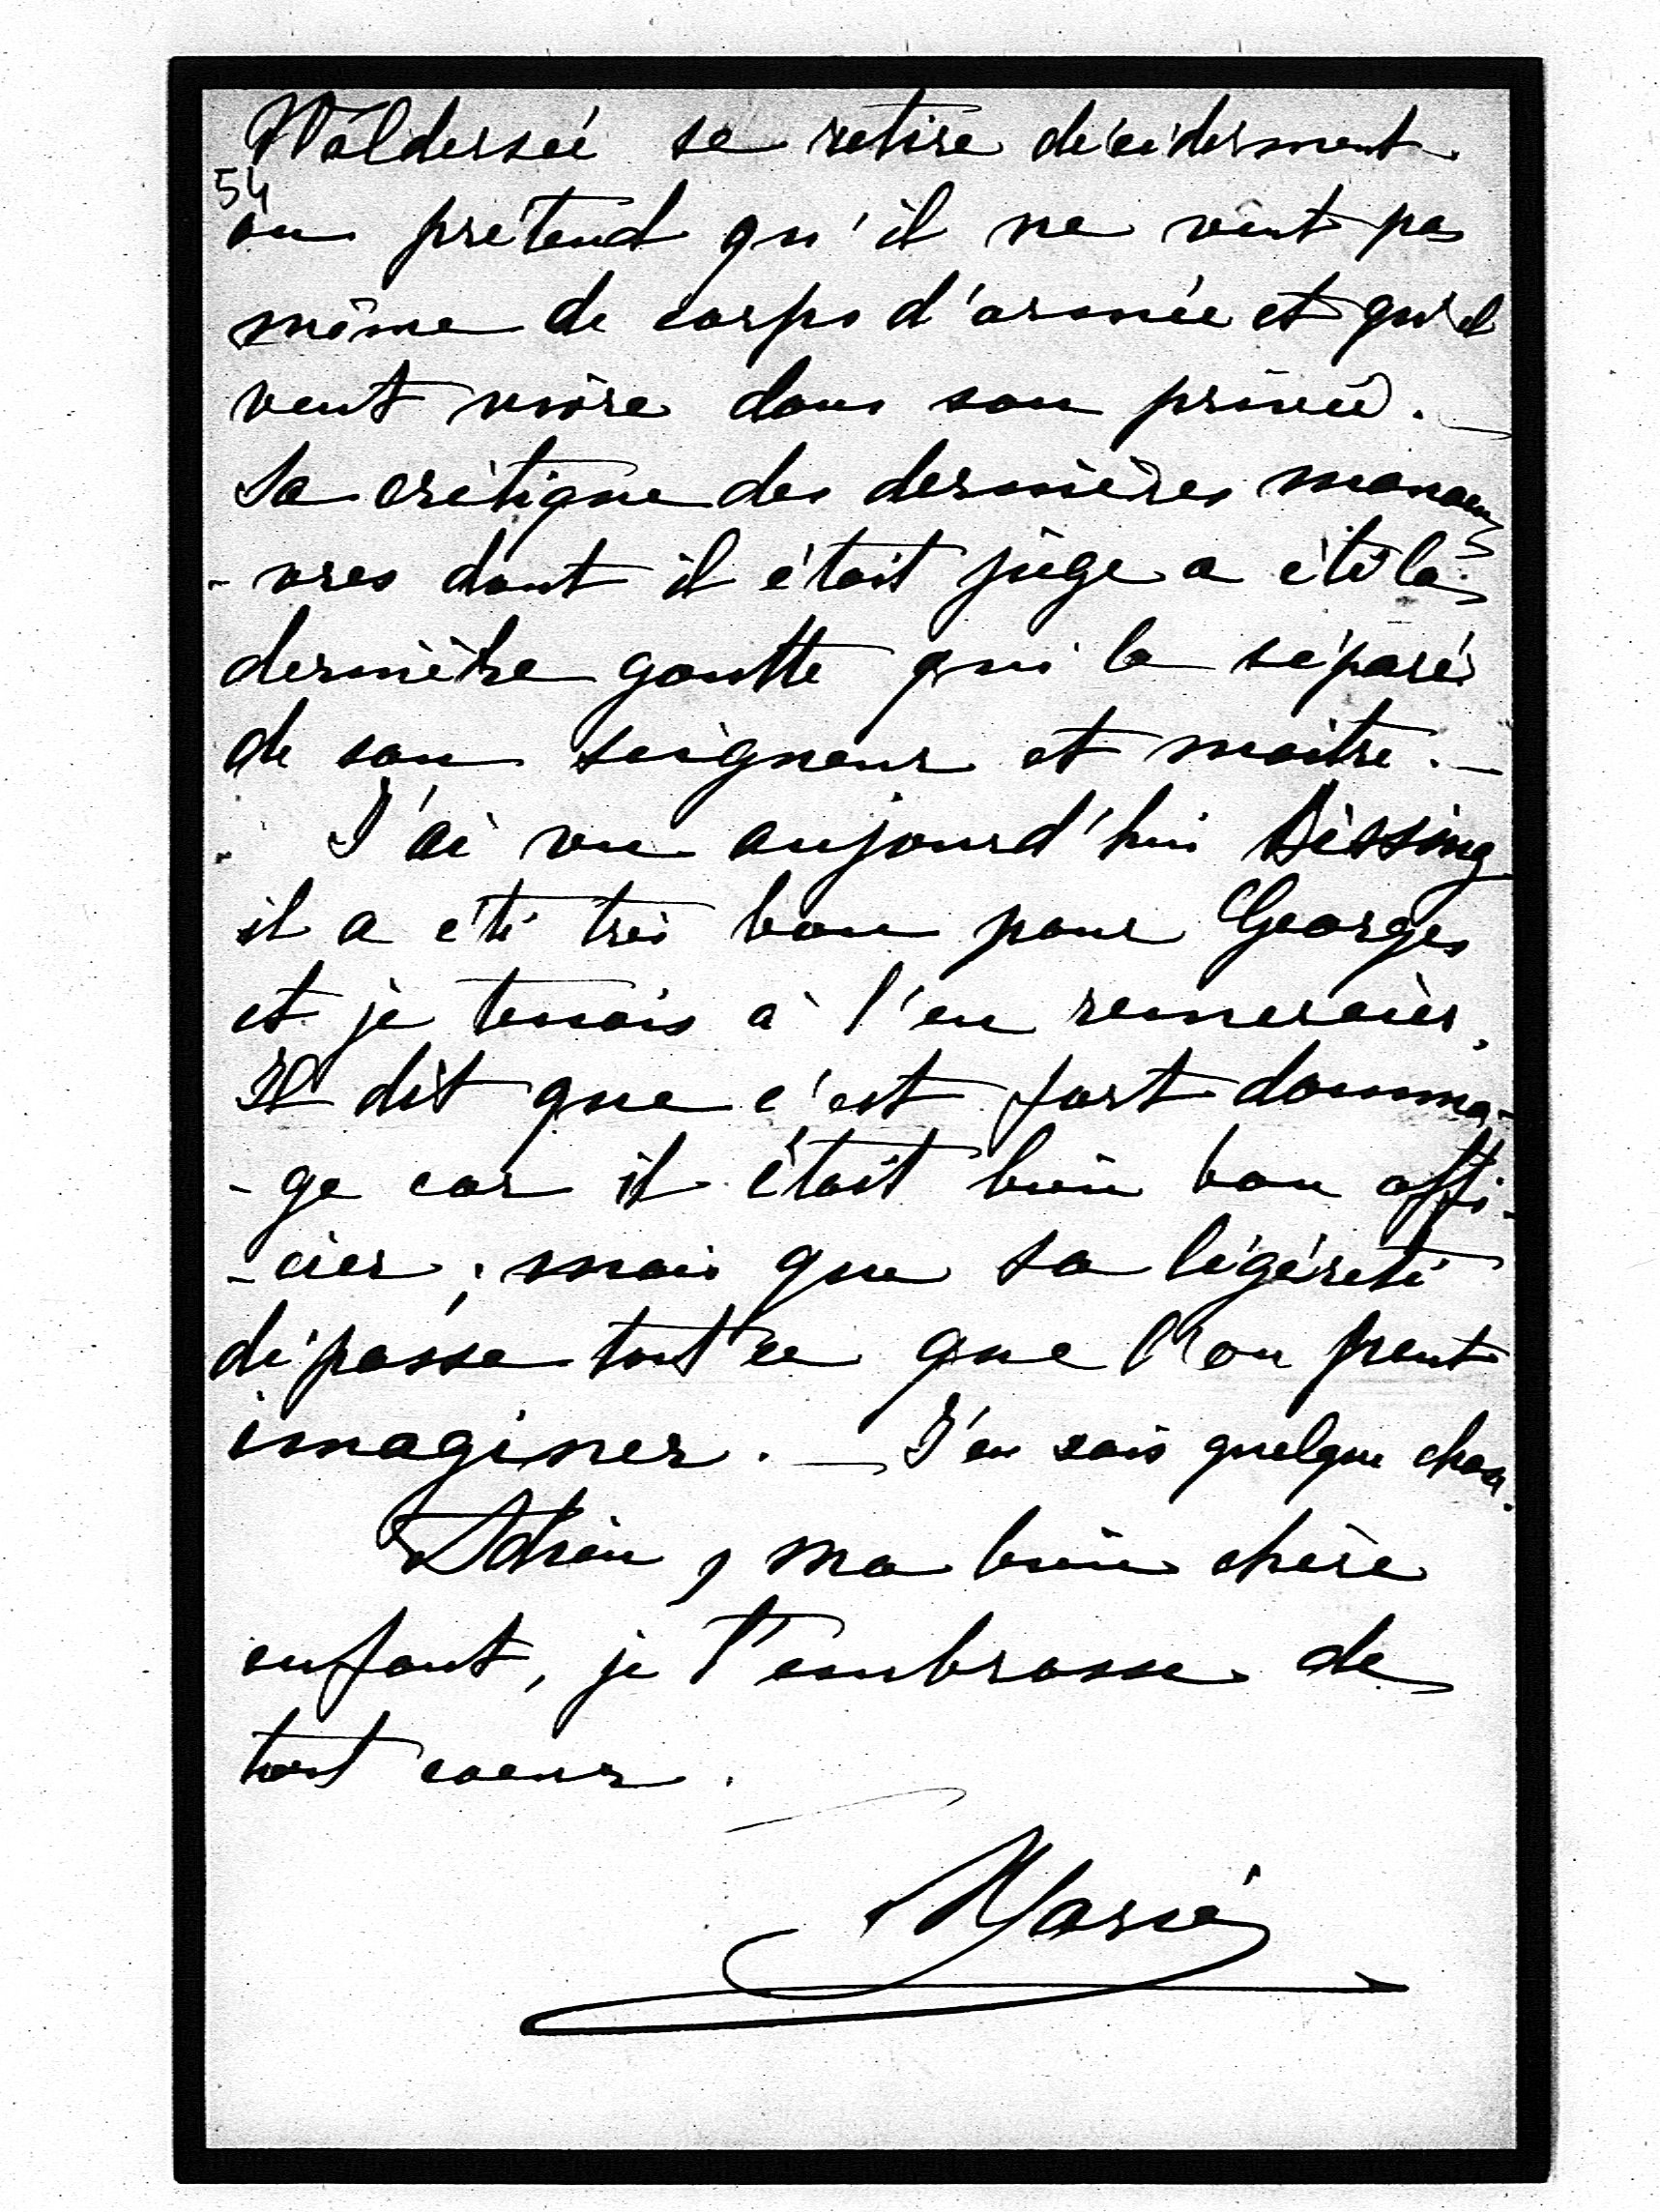 Waldersee se retire décidemment
54
on prétend qu'il ne veut pas
même de corps d'armée et qu'il
veut vivre dans son privé. —
Sa critique des dernières manoeu
- vres dont il était juge a été la
dernière goutte qui l'a séparé
de son seigneur et maître. —
J'ai vu aujourd'hui Bissing
il a été très bon pour Georges
et je tenais à l'en remercier.
Il dit que c'est fort domma-
- ge car il était bien bon offi-
- cier ; mais que sa légéreté
dépasse tout ce que l'on peut
imaginer. — J'en sais quelque chose.
Adieu, ma bien chère
enfant, je t'embrasse de
tout coeur.
Marie